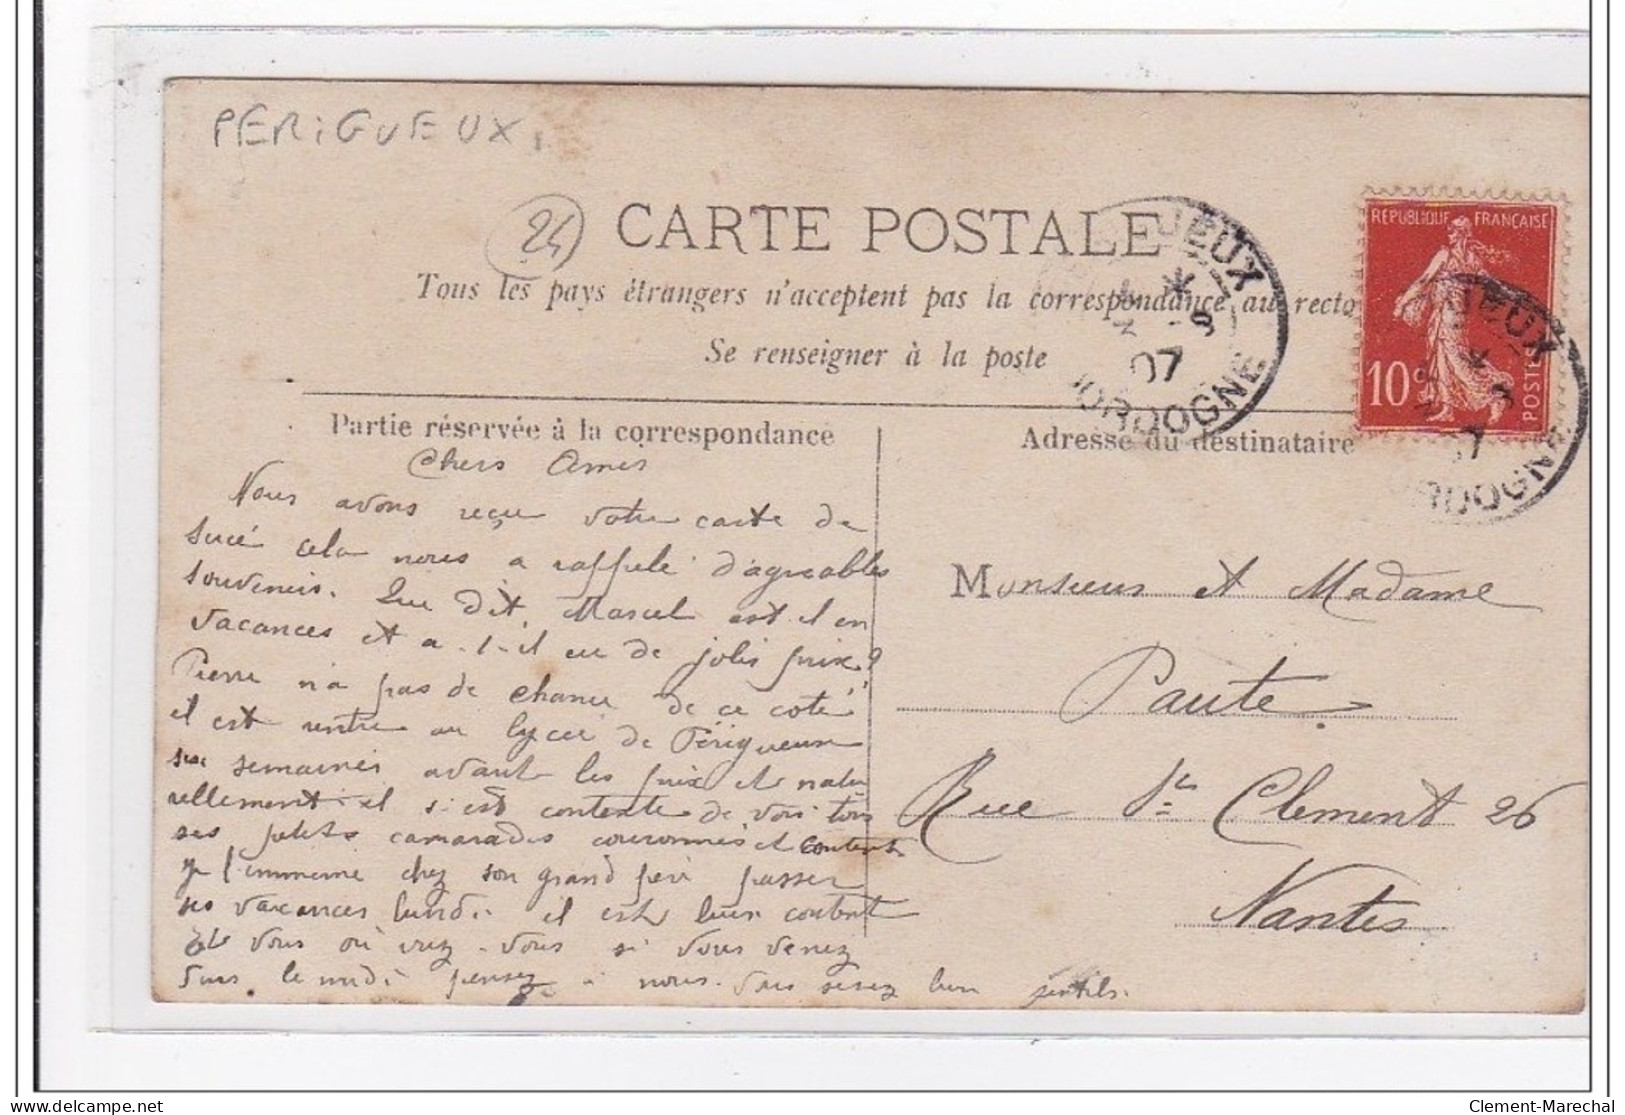 PERIGUEUX
24
CARTE POSTALE
Tous les pays étrangers n'acceptent pas la correspondance au recto
Se renseigner à la poste
RÉPUBLIQUE FRANÇAISE
10 c
POSTES
UEUX
07
DORDOGNE
UEUX
RDOGNE
Partie réservée à la correspondance
Adresse du destinataire
Chers Amis
Nous avons reçu votre carte de
Sucé cela nous a rappelé d'agreables
souvenirs. Que dit Marcel est il en
vacances et a-t-il eu de jolis prix?
Pierre n'a pas de chance de ce coté
il est rentre au lycée de Périgueux
semaines avant les prix et natu
rellement il s'est contente de voir tous
ses petits camarades couronnés et contents
je l'emmene chez son grand père passer
ses vacances lundi il est bien content
Et vous où irez-vous si vous venez
dans le midi pensez à nous. Vous serez bien gentils.
Monsieur et Madame
Paute
Rue St Clement 26
Nantes
Clement-Marechal